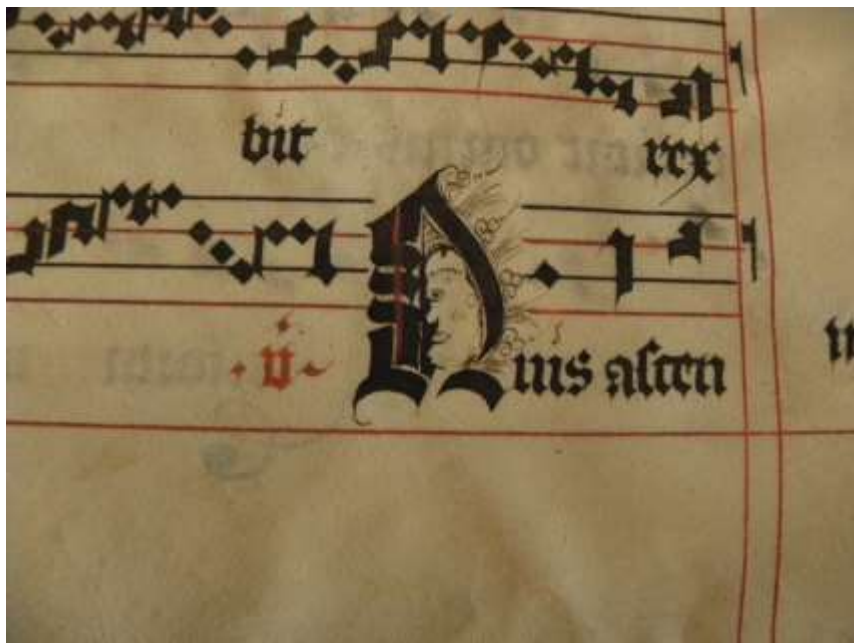 bit rex
v Quis aſcen